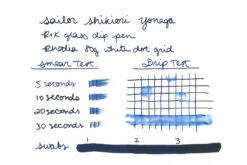 sailor shikiori yonaga
R+K glass dip pen
Rhodia 80g white dot grid
smear Test Drip Test
5 seconds
10 seconds
20 seconds
30 seconds
swabs 1 2 3